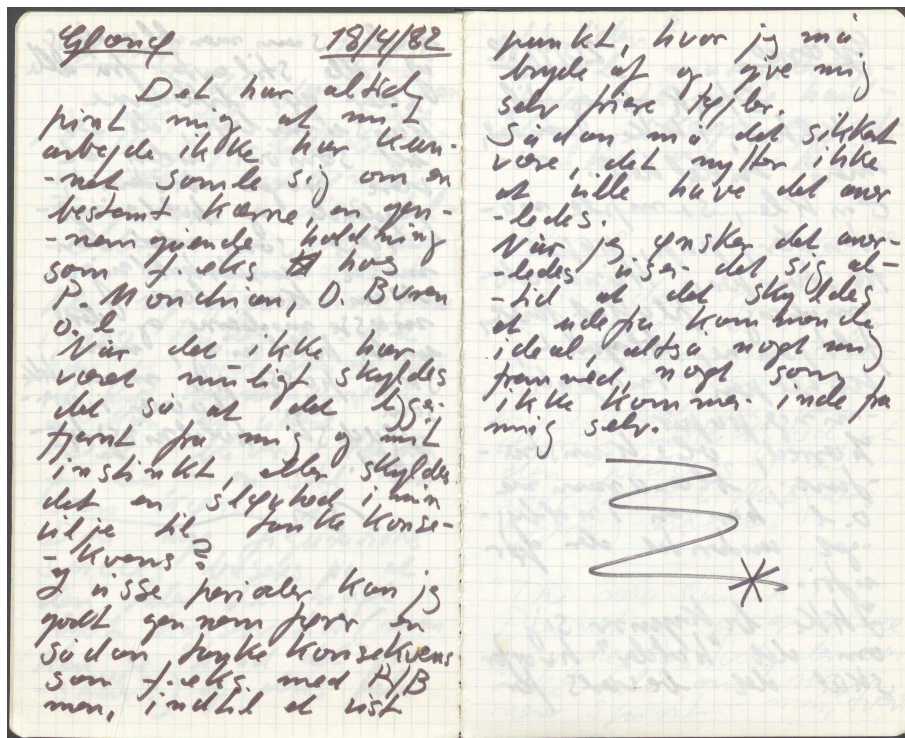 Gland 18/4/82
Det har altid
pint mig at mit
arbejde ikke har kun-
-net samle sig om en
bestemt kærne, en gen-
-nemgående holdning
som f.eks hos
P. Mondrian, D. Buren
o.l
Når det ikke har
været muligt skyldes
det så at det ligger
fjernt fra mig og mit
instinkt, eller skyldes
det en slaphed i min
vilje til tanke konse-
-kvens?
I visse perioder kan jeg
godt gennemføre en
sådan tanke konsekvens
som f.eks. med R/B
men, indtil et vist
punkt, hvor jeg må
bryde af og give mig
selv friere tøjler.
Sådan må det sikkert
være, det nytter ikke
at ville have det anor
-ledes
Når jeg ønsker det anor-
-ledes viser det sig al-
-tid at det skyldes
et udefra kommende
ideal, altså noget mig
fremmed, noget som
ikke kommer inde fra
mig selv.